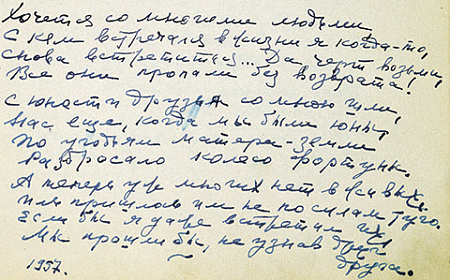 Хочется со многими людьми,
С кем встречался в жизни я когда-то,
снова встретиться... Да, черт возьми,
Все они пропали без возврата!
С юности друзья со мною шли,
Нас еще, когда мы были юны,
По угодьям матери-земли
Разбросало колесо фортуны.
А теперь уж многих нет в живых.
Или пришлось им не по силам туго.
Если бы я даже встретил их,
Мы прошли бы, не узнав друг
друга.
1957.